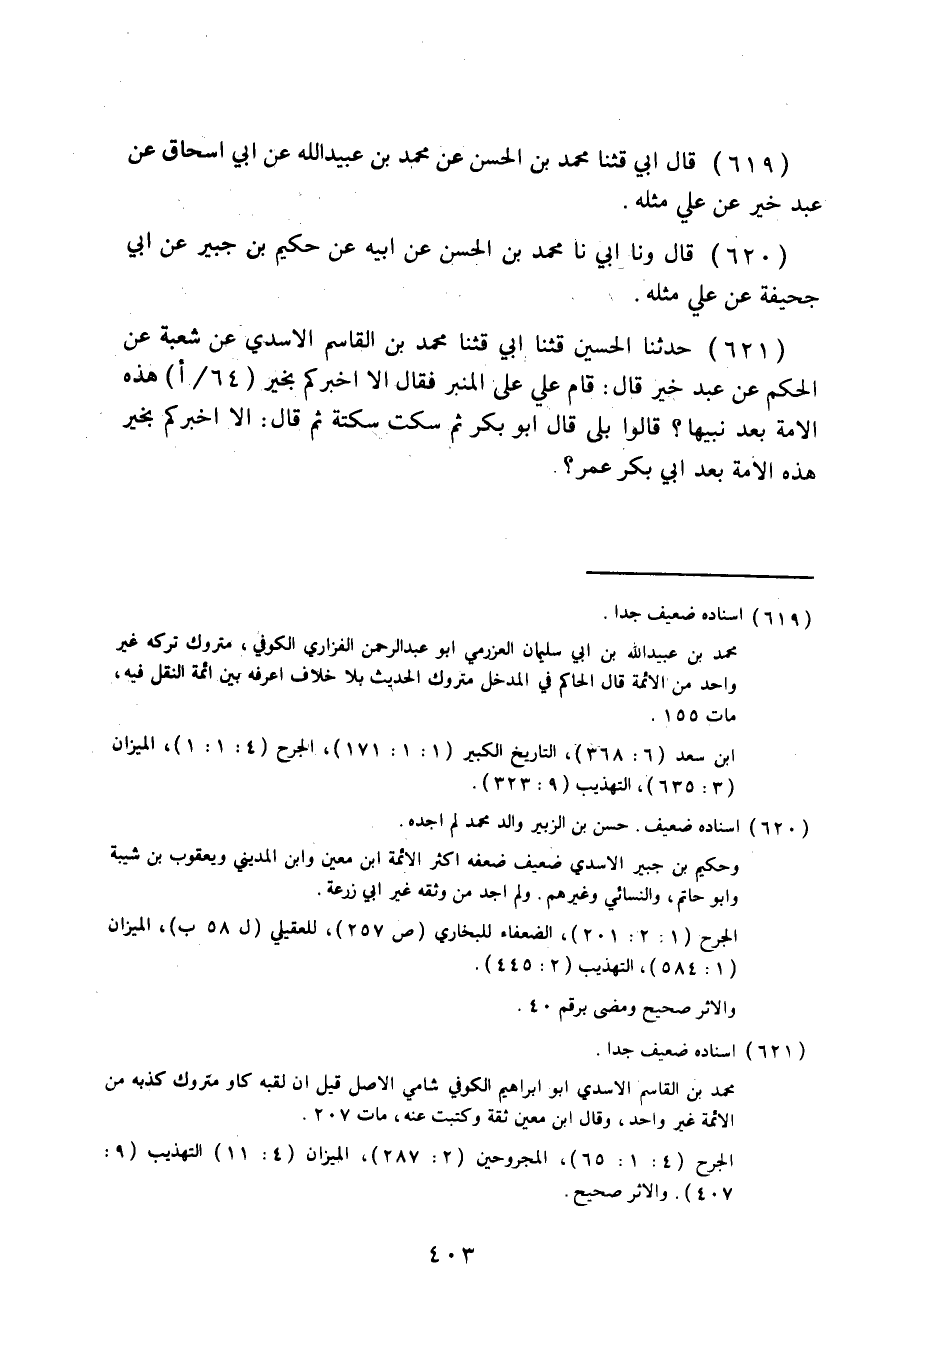 (٦١٩) قال ابي قثنا محمد بن الحسن عن محمد بن عبيدالله عن ابي اسحاق عن
عبد خير عن علي مثله .
(٦٢٠) قال ونا ابي نا محمد بن الحسن عن ابيه عن حكيم بن جبير عن ابي
جحيفة عن علي مثله .
(٦٢١) حدثنا الحسين قثنا ابي قثنا محمد بن القاسم الاسدي عن شعبة عن
الحكم عن عبد خير قال : قام علي على المنبر فقال الا اخبركم بخير (٦٤/ أ) هذه
الامة بعد نبيها؟ قالوا بلى قال ابو بكر ثم سكت سكتة ثم قال : الا اخبركم بخير
هذه الامة بعد ابي بكر عمر؟ .
(٦١٩) اسناده ضعيف جدا .
محمد بن عبيدالله بن ابي سليمان العزرمي ابو عبدالرحمن الفزاري الكوفي ، متروك تركه غير
واحد من الائمة قال الحاكم في المدخل متروك الحديث بلا خلاف اعرفه بين ائمة النقل فيه ،
مات ١٥٥ .
ابن سعد (٦ : ٣٦٨)، التاريخ الكبير (١ : ١ : ١٧١)، الجرح (٤ : ١ : ١)، الميزان
(٣ : ٦٣٥)، التهذيب (٩ : ٣٢٣) .
(٦٢٠) اسناده ضعيف . حسن بن الزبير والد محمد لم اجده .
وحكيم بن جبير الاسدي ضعيف ضعفه اكثر الائمة ابن معين وابن المديني ويعقوب بن شيبة
وابو حاتم ، والنسائي وغيرهم . ولم اجد من وثقه غير ابي زرعة .
الجرح (١ : ٢ : ٢٠١)، الضعفاء للبخاري (ص ٢٥٧)، للعقيلي (ل ٥٨ ب)، الميزان
(١ : ٥٨٤)، التهذيب (٢ : ٤٤٥) .
والاثر صحيح ومضى برقم ٤٠ .
(٦٢١) اسناده ضعيف جدا .
محمد بن القاسم الاسدي ابو ابراهيم الكوفي شامي الاصل قيل ان لقبه كاو متروك كذبه من
الائمة غير واحد ، وقال ابن معين ثقة وكتبت عنه ، مات ٢٠٧ .
الجرح (٤ : ١ : ٦٥)، المجروحين (٢ : ٢٨٧)، الميزان (٤ : ١١) التهذيب (٩ :
٤٠٧) . والاثر صحيح .
٤٠٣